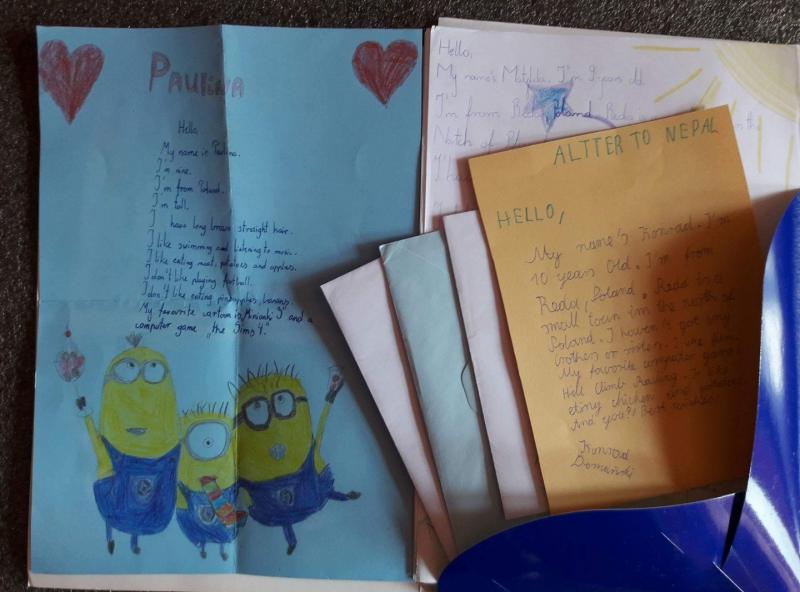 Paulina
Hello
My name is Paulina.
I'm nine.
I'm from Poland.
I'm tall.
I have long brown straight hair.
I like swimming and listening to music.
I like eating meat, potatoes and apples.
I don't like playing football.
I don't like eating pineapples, bananas.
My favourite cartoon is „Minionki 3" and a
computer game „The Sims 4."
Hello,
My name's Matylda. I'm 9 years old
I'm from Reda, Poland. Reda is
the
North of
I
ALTTER TO NEPAL
HELLO,
My name's Konrad. I'm
10 years old. I'm from
Reda, Poland. Reda is a
small town in the north of
Poland. I haven't got any
brothers or sisters. I like
My favorite computer game:
Hill Climb Racing. I like
etiny chicken and
And you?! Best wishes!
Konrad
Domański